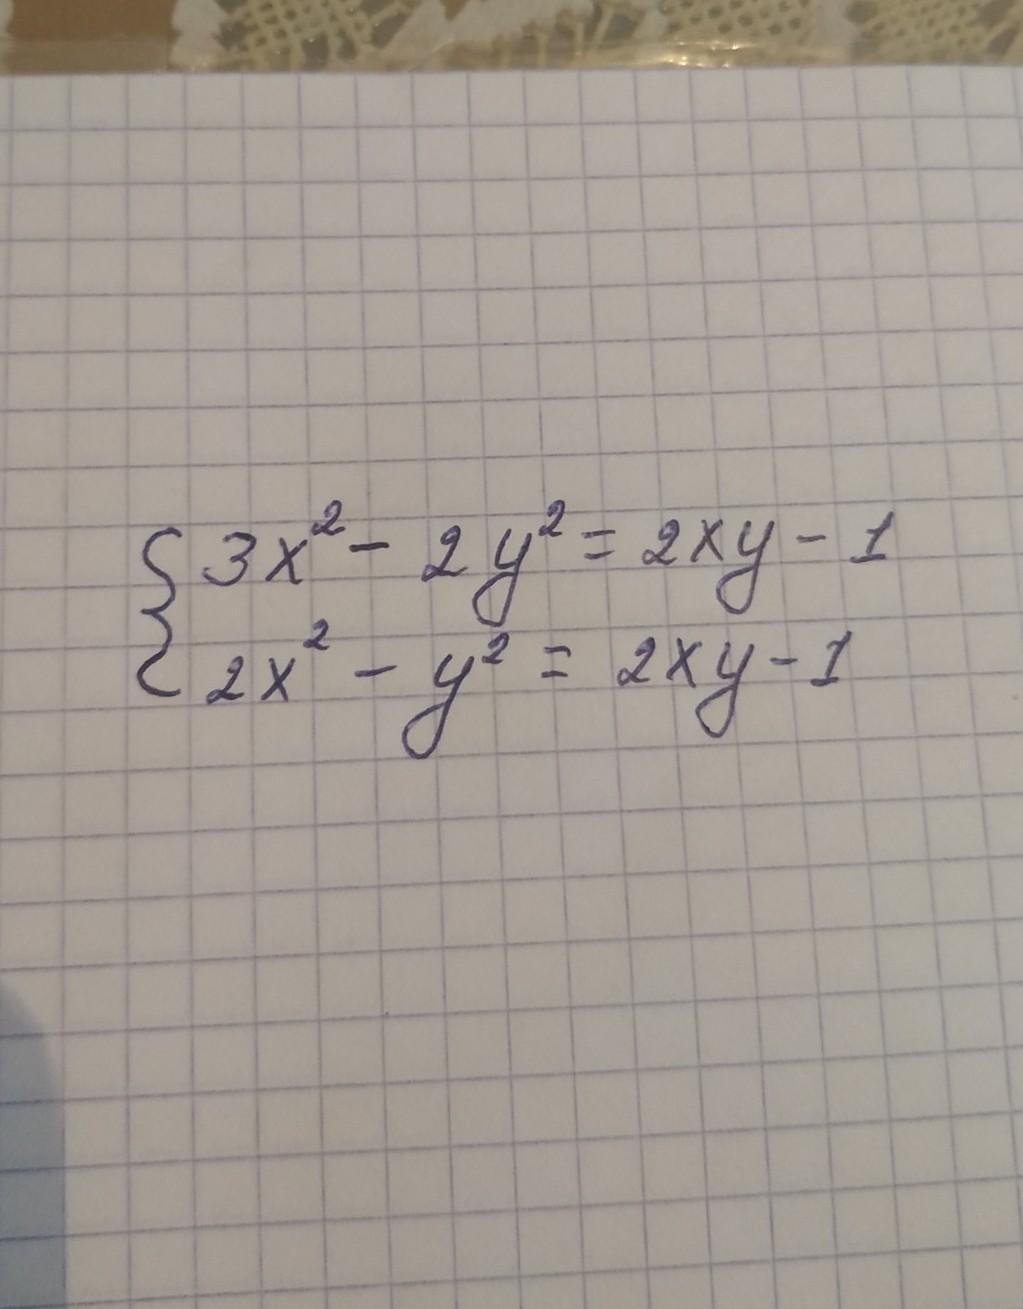 3x² - 2y² = 2xy - 1
2x² - y² = 2xy - 1